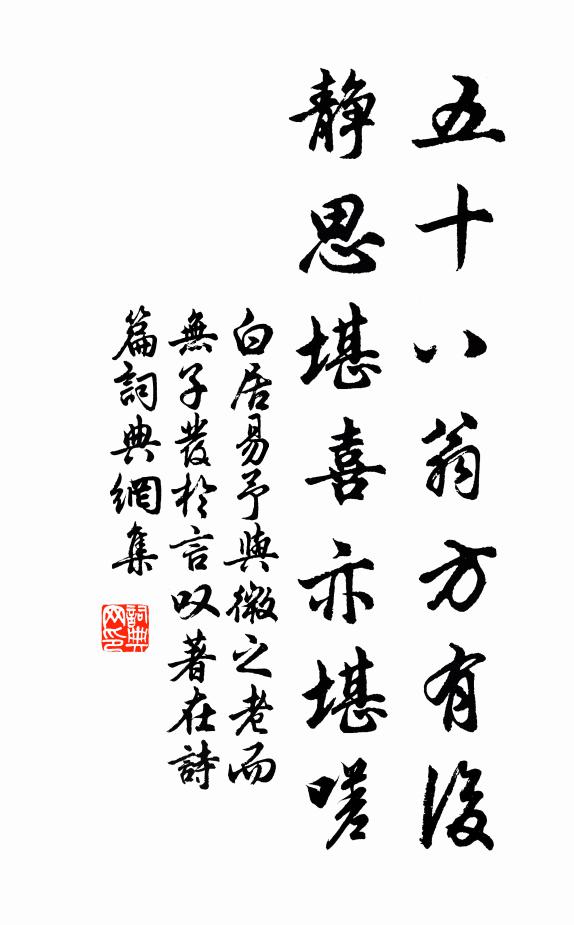 五十八翁方有後
静思堪喜亦堪嗟
白居易予與微之老而
無子發於言叹著在詩
篇詞典網集
詞典
网印